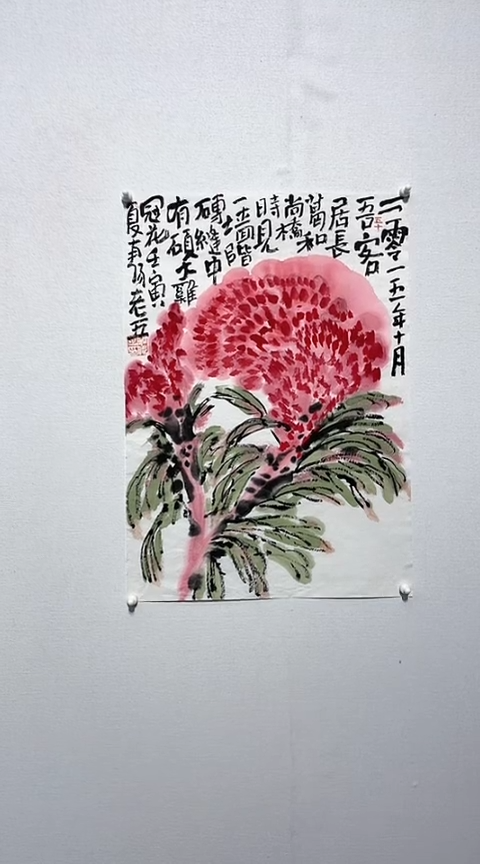 二零一五年十月
吾客
居長
葛和
尚橋
時見
一面階
土
磚縫中
有碩大雞
冠花壬寅
夏
老五